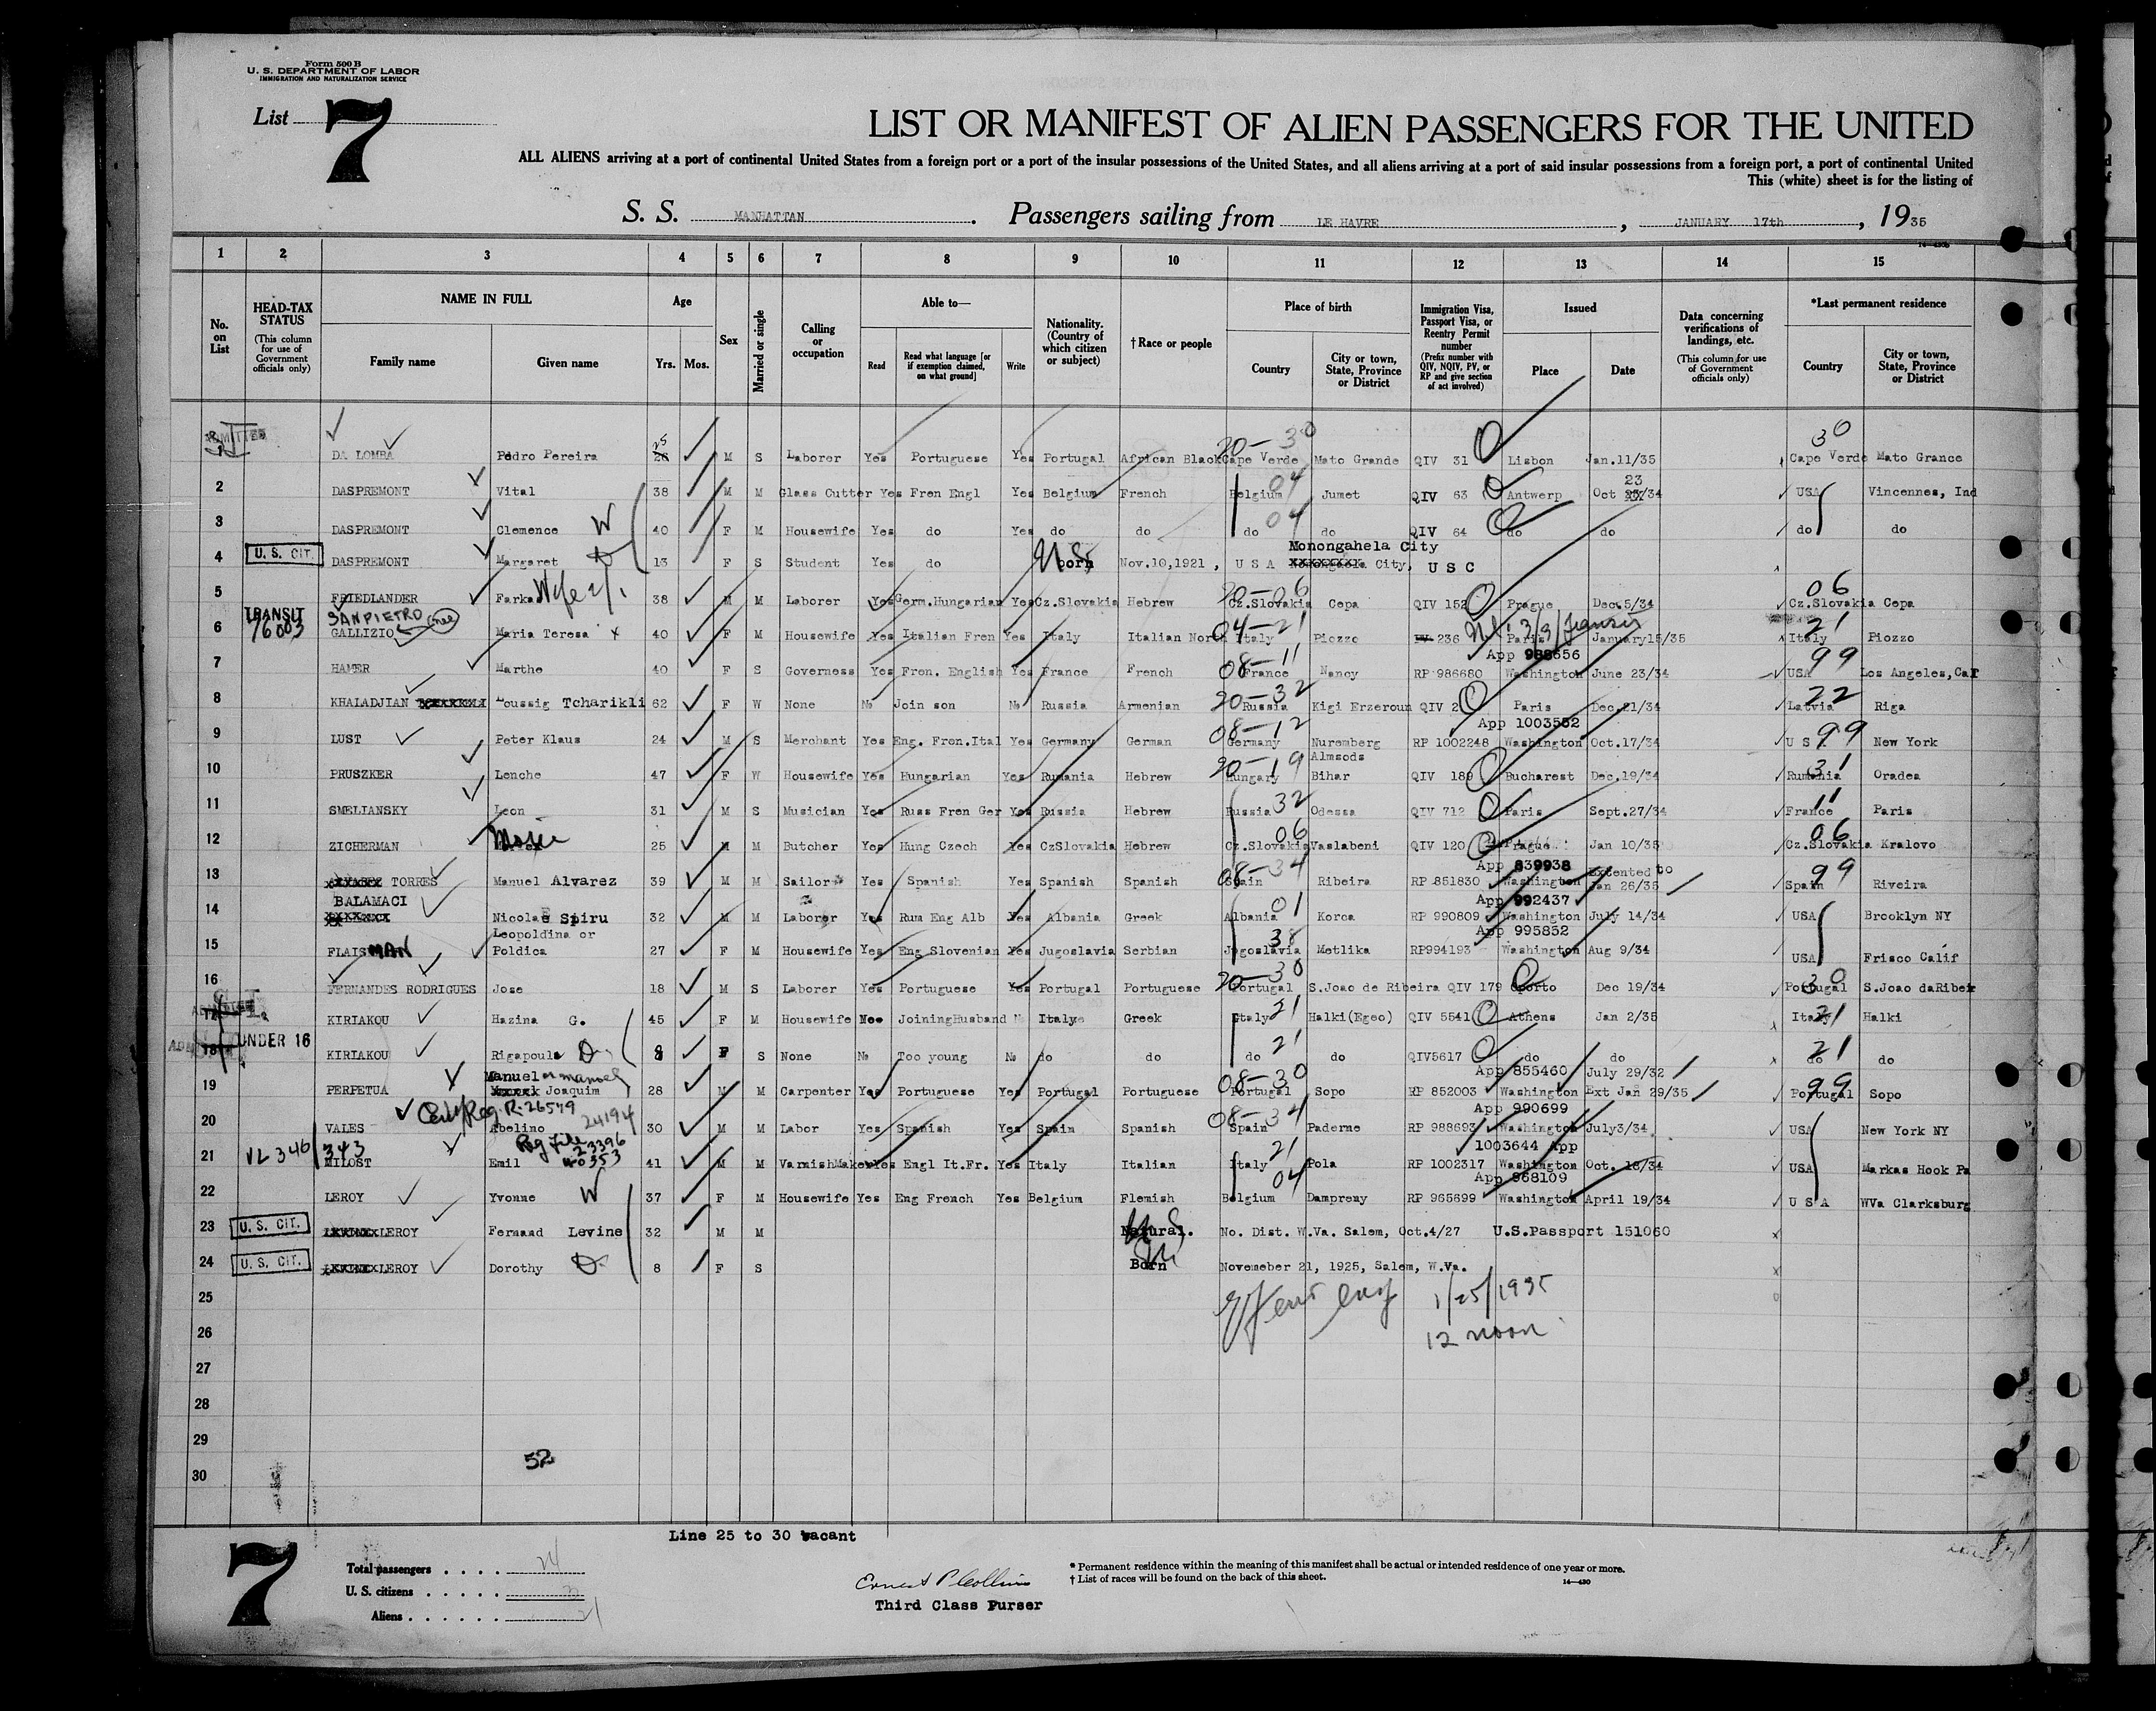 Form 500 B
U. S. DEPARTMENT OF LABOR
IMMIGRATION AND NATURALIZATION SERVICE
List 7
LIST OR MANIFEST OF ALIEN PASSENGERS FOR THE UNITED
ALL ALIENS arriving at a port of continental United States from a foreign port or a port of the insular possessions of the United States, and all aliens arriving at a port of said insular possessions from a foreign port, a port of continental United
This (white) sheet is for the listing of
S. S. MANHATTAN. Passengers sailing from LE HAVRE, JANUARY 17th, 1935
1 2 3 4 5 6 7 8 9 10 11 12 13 14 15
No. on List
HEAD-TAX STATUS (This column for use of Government officials only)
NAME IN FULL Family name Given name
Age Yrs. Mos.
Sex
Married or single
Calling or occupation
Able to— Read Read what language [or if exemption claimed, on what ground] Write
Nationality. (Country of which citizen or subject)
†Race or people
Place of birth Country City or town, State, Province or District
Immigration Visa, Passport Visa, or Reentry Permit number (Prefix number with QIV, NQIV, PV, or RP and give section of act involved)
Issued Place Date
Data concerning verifications of landings, etc. (This column for use of Government officials only)
*Last permanent residence Country City or town, State, Province or District
20-30 30
DA LOMBA Pedro Pereira 25 M S Laborer Yes Portuguese Yes Portugal African Black Cape Verde Mato Grande QIV 31 Lisbon Jan.11/35 Cape Verde Mato Grance
2 DASPREMONT Vital 38 M M Glass Cutter Yes Fren Engl Yes Belgium French Belgium 04 Jumet QIV 63 Antwerp Oct 23/34 USA Vincennes, Ind
3 DASPREMONT Clemence W 40 F M Housewife Yes do Yes do do do 04 do QIV 64 do do do do
4 U. S. CIT. DASPREMONT Margaret D 13 F S Student Yes do US born Nov.10,1921, U S A Monongahela City City, U S C
5 FRIEDLANDER Farkas Wife 2/1 38 M M Laborer Yes Germ.Hungarian Yes Cz.Slovakia Hebrew 20-06 Cz.Slovakia Cepa QIV 152 Prague Dec.5/34 06 Cz.Slovakia Cepa
TRANSIT 76003 SANPIETRO (nee)
6 GALLIZIO Maria Teresa x 40 F M Housewife Yes Italian Fren Yes Italy Italian North 04-21 Italy Piozzo 236 Paris January15/35 21 Italy Piozzo
App 988656
7 HAMER Marthe 40 F S Governess Yes Fren. English Yes France French 08-11 France Nancy RP 986680 Washington June 23/34 99 USA Los Angeles,Cal
8 KHALADJIAN Loussig Tcharikli 62 F W None No Join son No Russia Armenian 20-32 Russia Kigi Erzeroum QIV 2 Paris Dec.21/34 22 Latvia Riga
App 1003552
9 LUST Peter Klaus 24 M S Merchant Yes Eng. Fren.Ital Yes Germany German 08-12 Germany Nuremberg RP 1002248 Washington Oct.17/34 99 U S New York
Almsods
10 PRUSZKER Lenche 47 F W Housewife Yes Hungarian Yes Rumania Hebrew 20-19 Hungary Bihar QIV 189 Bucharest Dec.19/34 31 Rumania Oradea
11 SMELIANSKY Leon 31 M S Musician Yes Russ Fren Ger Yes Russia Hebrew Russia 32 Odessa QIV 712 Paris Sept.27/34 11 France Paris
12 ZICHERMAN 25 M M Butcher Yes Hung Czech Yes CzSlovakia Hebrew 06 Cz.Slovakia Vaslabeni QIV 120 Prague Jan 10/35 06 Cz.Slovakia Kralovo
App 839938 Extented to
13 TORRES Manuel Alvarez 39 M M Sailor Yes Spanish Yes Spanish Spanish 08-34 Spain Ribeira RP 851830 Washington Jan 26/35 99 Spain Riveira
BALAMACI App 992437
14 Nicolae Spiru 32 M M Laborer Yes Rum Eng Alb Yes Albania Greek 01 Albania Korca RP 990809 Washington July 14/34 USA Brooklyn NY
Leopoldina or App 995852
15 FLAISMAN Poldica 27 F M Housewife Yes Eng Slovenian Yes Jugoslavia Serbian 38 Jugoslavia Metlika RP994193 Washington Aug 9/34 USA Frisco Calif
16 FERNANDES RODRIGUES Jose 18 M S Laborer Yes Portuguese Yes Portugal Portuguese 20-30 Portugal S.Joao de Ribeira QIV 179 Oporto Dec 19/34 30 Portugal S.Joao daRibeir
KIRIAKOU Hazina G. 45 F M Housewife JoiningHusband Italy Greek Italy 21 Halki(Egeo) QIV 5541 Athens Jan 2/35 21 Italy Halki
18 UNDER 16 KIRIAKOU Rigapoula D. F S None No Too young No do do do 21 do QIV5617 do do 21 do do
Manuel or manoel App 855460 July 29/32
19 PERPETUA Joaquim 28 M M Carpenter Yes Portuguese Yes Portugal Portuguese 08-30 Portugal Sopo RP 852003 Washington Ext Jan 29/35 99 Portugal Sopo
Cert/Reg. R-26549 24194 App 990699
20 VALES Abelino 30 M M Labor Yes Spanish Yes Spain Spanish 08-34 Spain Paderne RP 988693 Washington July3/34 USA New York NY
VL 346/343 Reg file 23396 40353 1003644 App
21 MILOST Emil 41 M M VarnishMaker Yes Engl It.Fr. Yes Italy Italian Italy 21 Pola RP 1002317 Washington Oct. 18/34 USA Markas Hook Pa
App 968109
22 LEROY Yvonne W 37 F M Housewife Yes Eng French Yes Belgium Flemish 04 Belgium Dampremy RP 965699 Washington April 19/34 U S A WVa Clarksburg
23 U. S. CIT. LEROY Fernand Levine 32 M M Natural. No. Dist. W.Va. Salem, Oct.4/27 U.S.Passport 151060
24 U. S. CIT. LEROY Dorothy D 8 F S Born Novemeber 21, 1925, Salem, W.Va.
25
1/25/1935
26
12 noon
27
28
29
52
30
Line 25 to 30 vacant
7
Total passengers 24
U. S. citizens 3
Aliens 21
Third Class Purser
* Permanent residence within the meaning of this manifest shall be actual or intended residence of one year or more.
† List of races will be found on the back of this sheet.
14—430